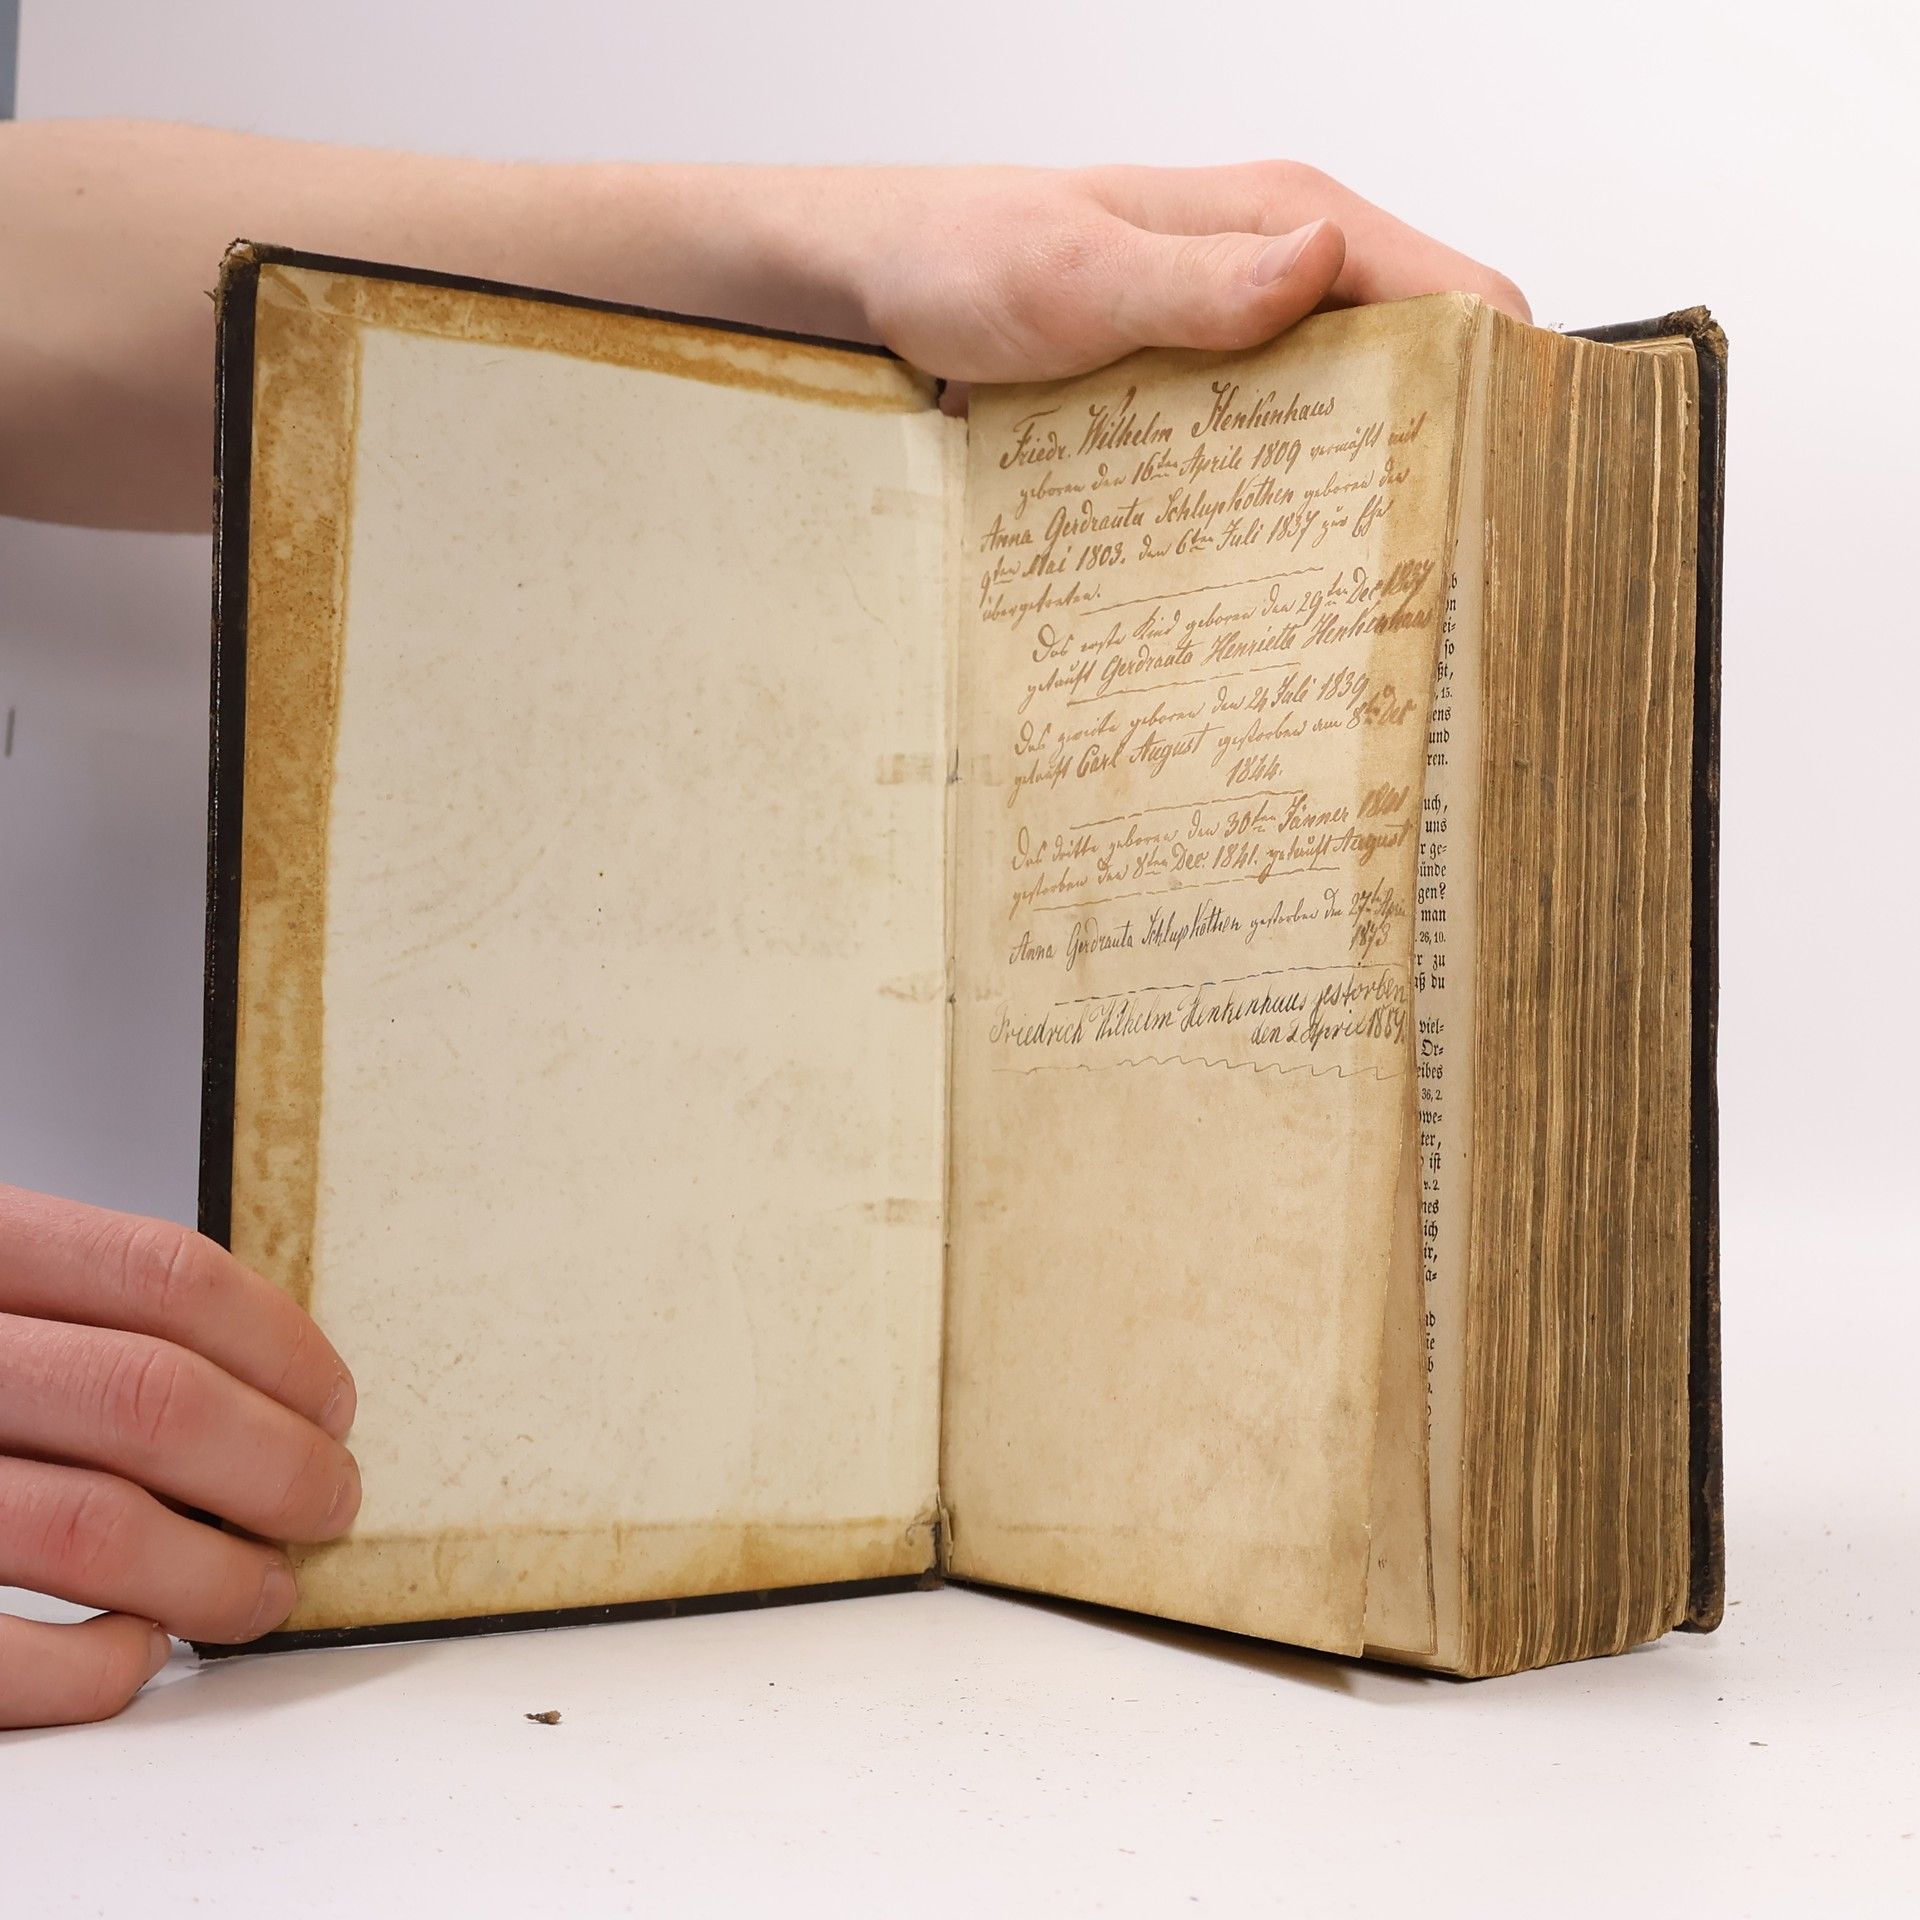 Friedr. Wilhelm Henkenhaus
geboren den 16ten Aprile 1809 vermählt mit
Anna Gerdrauta Schlupkothen geboren den
9ten Mai 1803. den 6ten Juli 1837 zur Ehe
übergetreten.
Das erste Kind geboren den 29ten Dec 1837
getauft Gerdrauta Henrietta Henkenhaus
Das zweite geboren den 24 Juli 1839
getauft Carl August gestorben am 8ten Dec
1844.
Das dritte geboren den 30ten Jänner 1841
gestorben den 8ten Dec. 1841. getauft August
Anna Gerdrauta Schlupkothen gestorben den 27ten
1873
Friedrich Wilhelm Henkenhaus gestorben
den 2 April
b
ei=
so
ßt,
, 15.
ens
und
ren.
uch,
uns
r ge=
ünde
gen?
man
. 26, 10.
r zu
aß du
viel=
Or=
eibes
36, 2.
ter,
ist
v. 2.
nes
ich
ir,